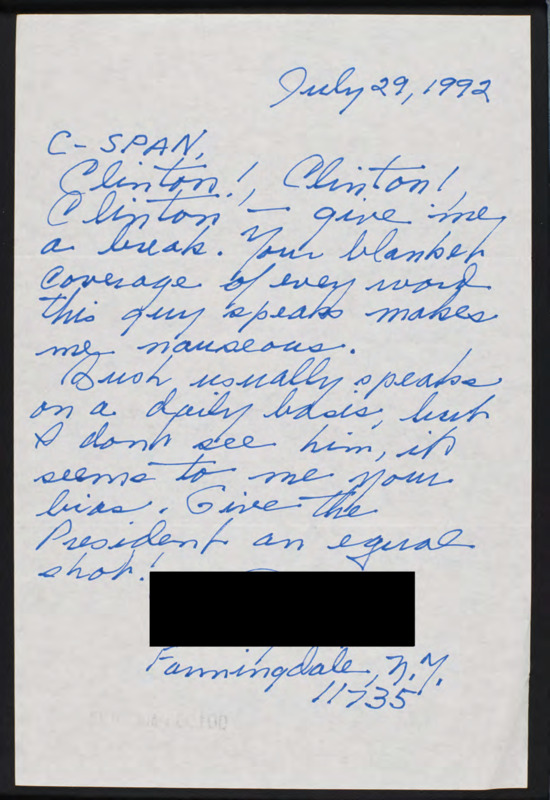 July 29, 1992
C-SPAN,
Clinton!, Clinton!,
Clinton — give me
a break. Your blanket
coverage of every word
this guy speaks makes
me nauseous.
Bush usually speaks
on a daily basis, but
I dont see him, it
seems to me your
bias. Give the
President an equal
shot!
Farmingdale, N.Y.
11735